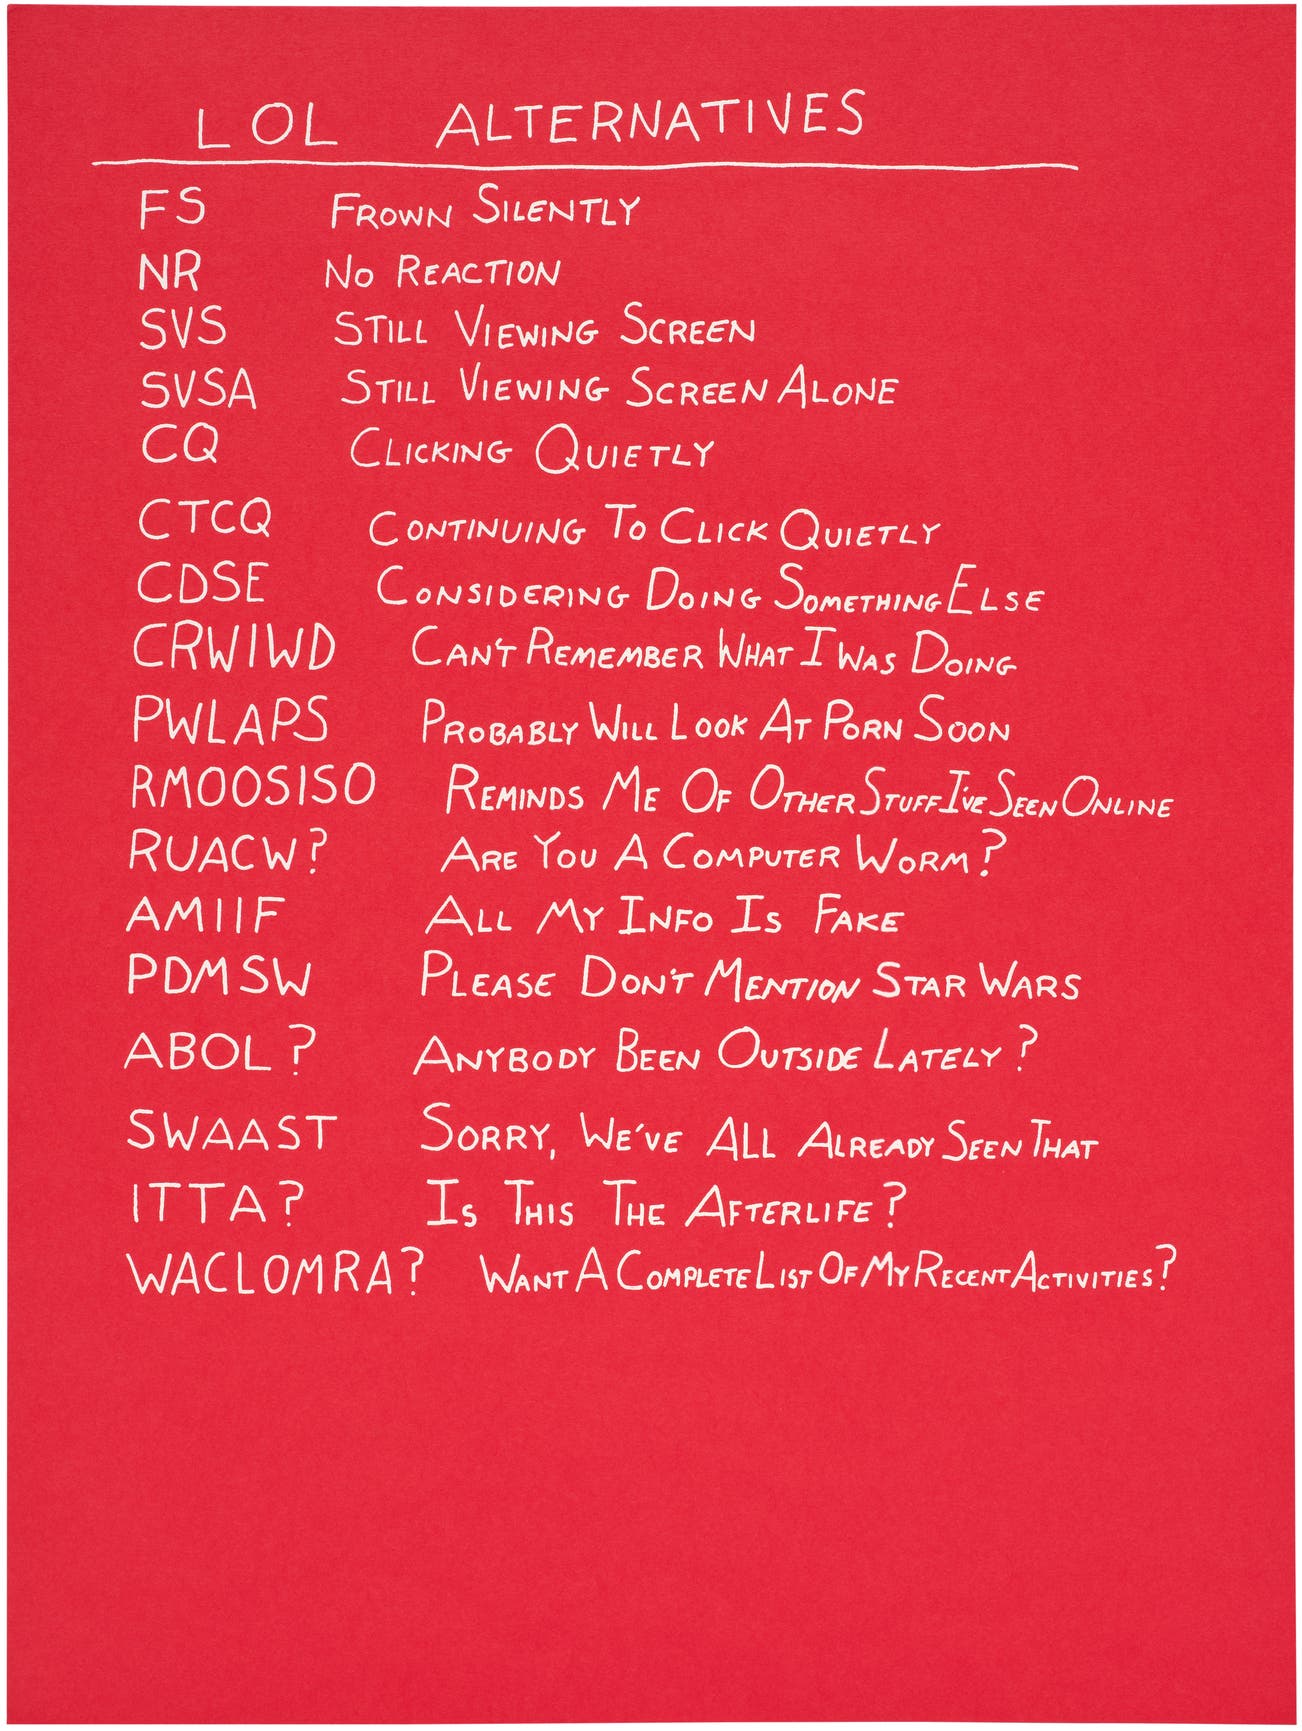 LOL ALTERNATIVES
FS FROWN SILENTLY
NR NO REACTION
SVS STILL VIEWING SCREEN
SVSA STILL VIEWING SCREEN ALONE
CQ CLICKING QUIETLY
CTCQ CONTINUING TO CLICK QUIETLY
CDSE CONSIDERING DOING SOMETHING ELSE
CRWIWD CAN'T REMEMBER WHAT I WAS DOING
PWLAPS PROBABLY WILL LOOK AT PORN SOON
RMOOSISO REMINDS ME OF OTHER STUFF I'VE SEEN ONLINE
RUACW? ARE YOU A COMPUTER WORM?
AMIIF ALL MY INFO IS FAKE
PDMSW PLEASE DON'T MENTION STAR WARS
ABOL? ANYBODY BEEN OUTSIDE LATELY?
SWAAST SORRY, WE'VE ALL ALREADY SEEN THAT
ITTA? IS THIS THE AFTERLIFE?
WACLOMRA? WANT A COMPLETE LIST OF MY RECENT ACTIVITIES?